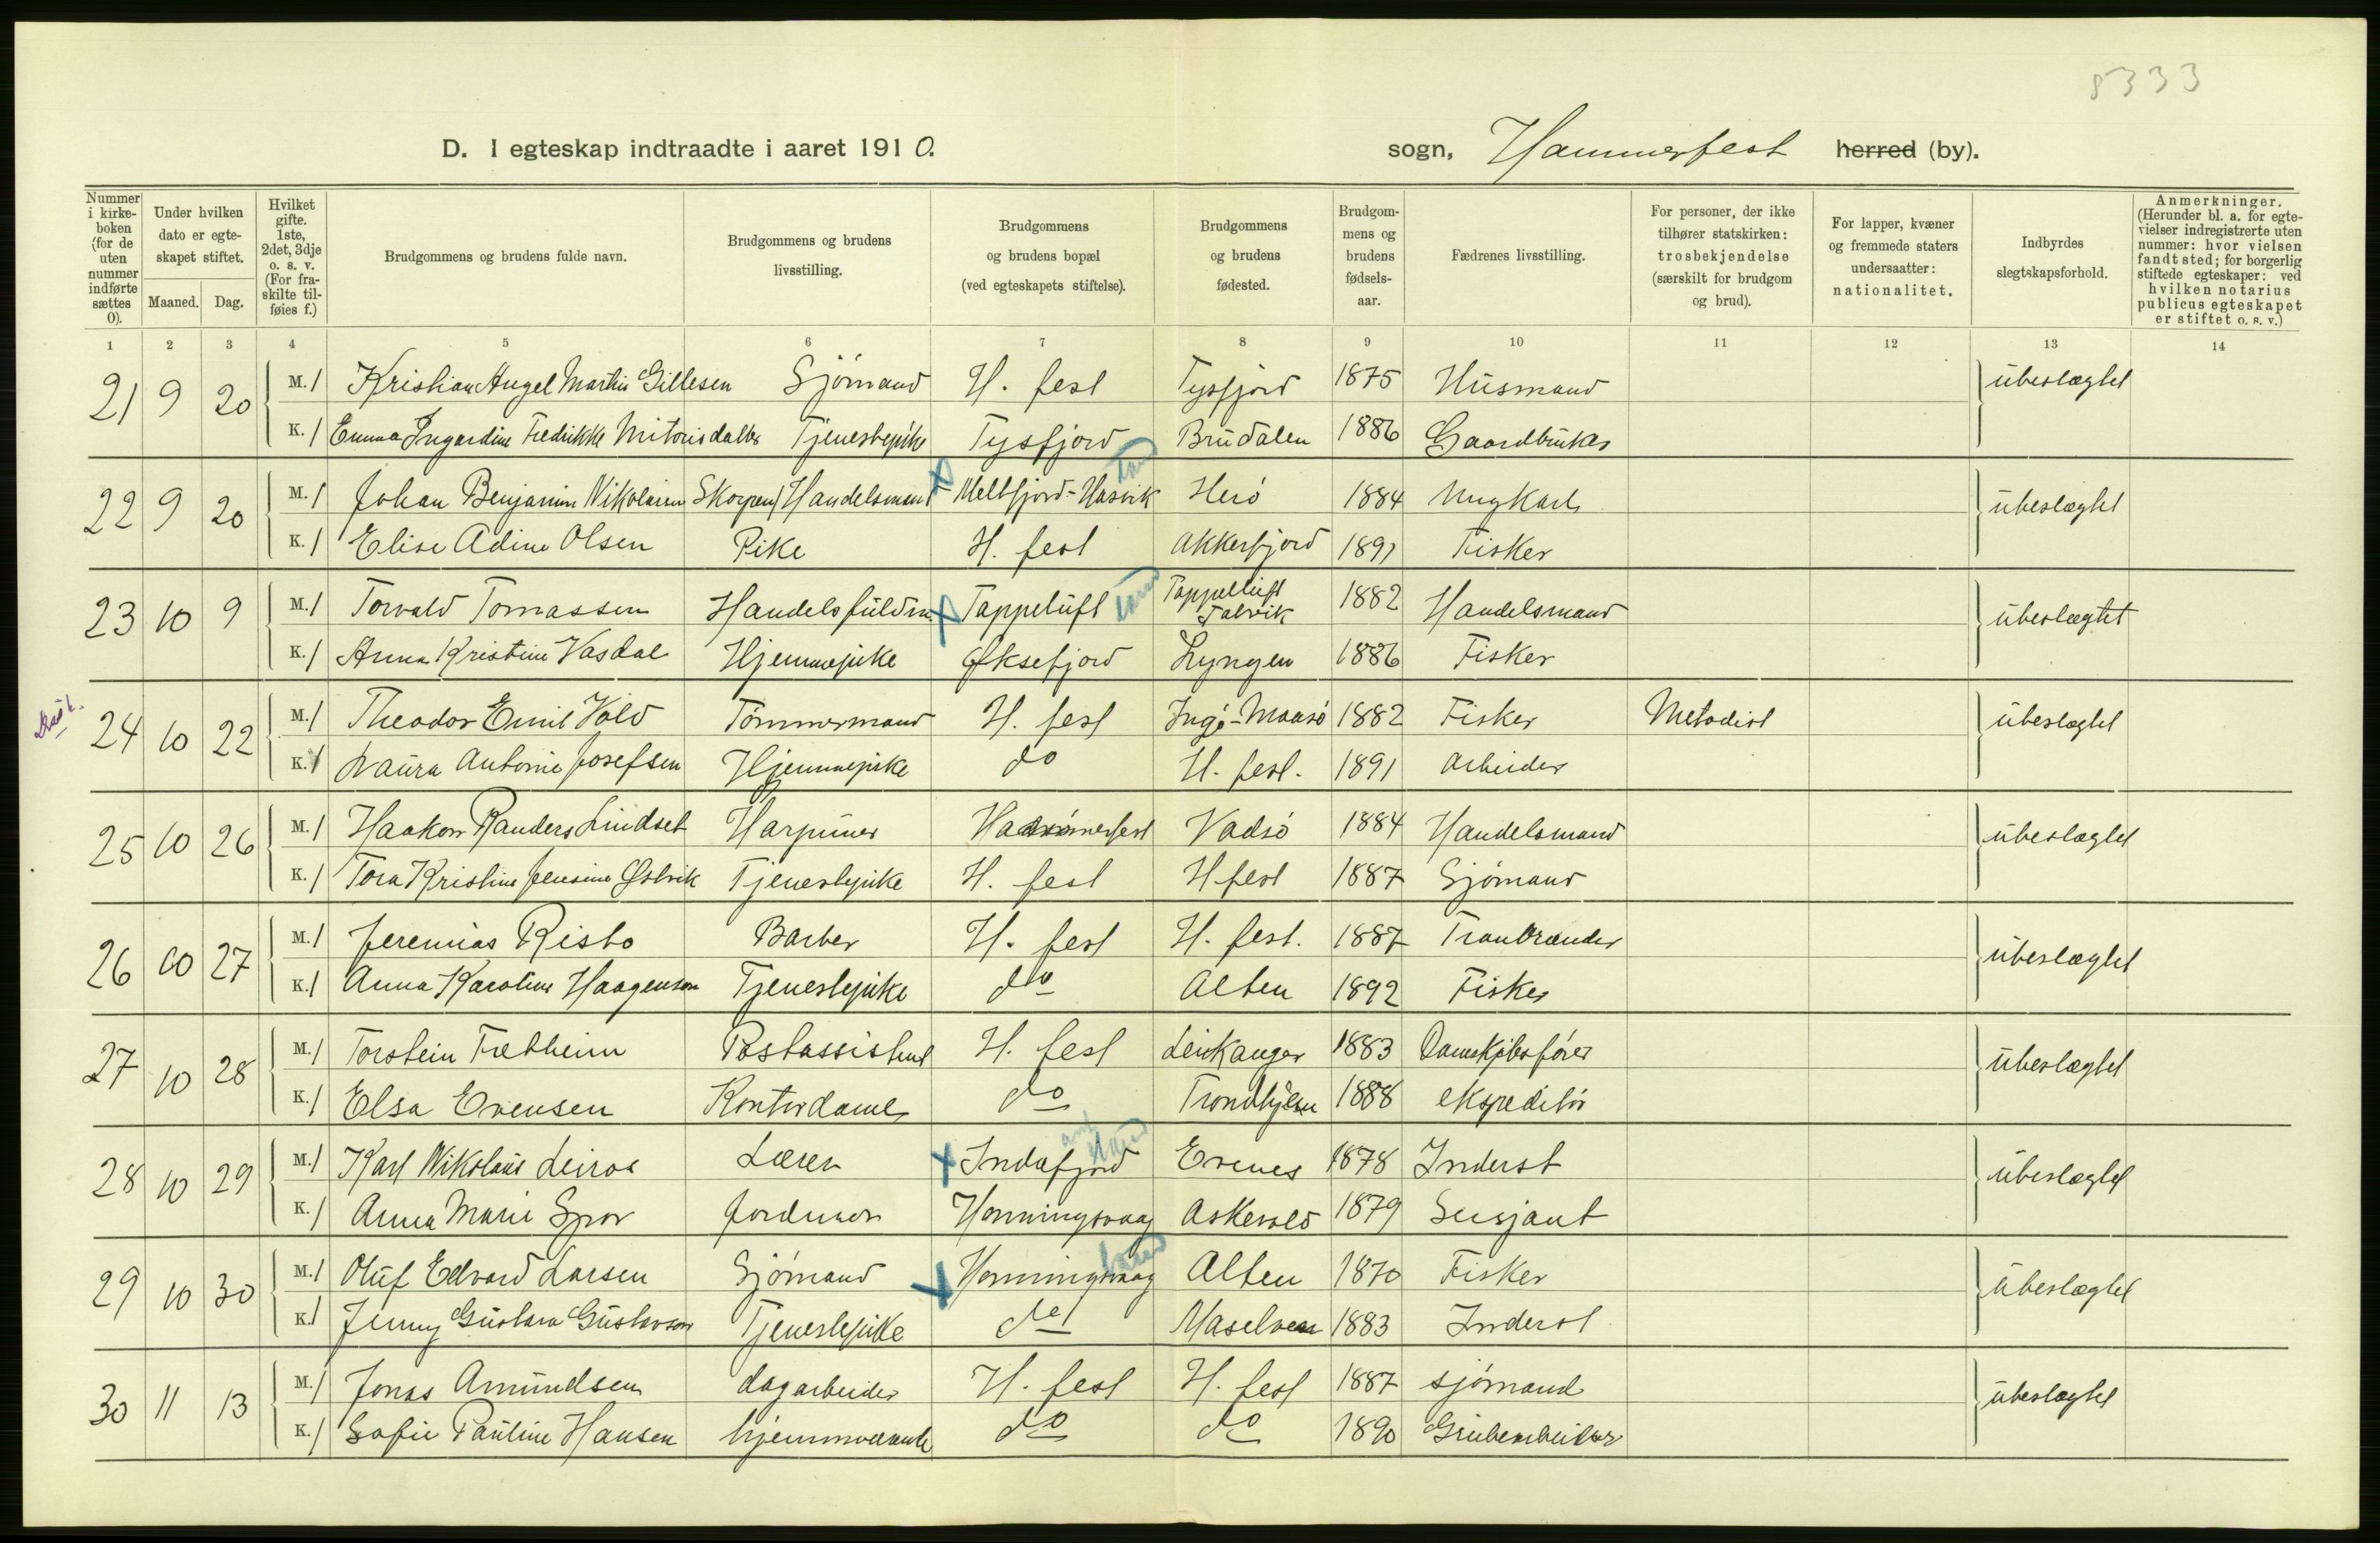 8333
D. I egteskap indtraadte i aaret 1910. sogn, Hammerfest herred (by).
Nummer i kirkeboken (for de uten nummer indførte sættes 0).
Under hvilken dato er egteskapet stiftet.
Maaned. Dag.
Hvilket gifte. 1ste, 2det, 3dje o. s. v. (For fraskilte tilføies f.)
Brudgommens og brudens fulde navn.
Brudgommens og brudens livsstilling.
Brudgommens og brudens bopæl (ved egteskapets stiftelse).
Brudgommens og brudens fødested.
Brudgommens og brudens fødselsaar.
Fædrenes livsstilling.
For personer, der ikke tilhører statskirken: trosbekjendelse (særskilt for brudgom og brud).
For lapper, kvæner og fremmede staters undersaatter: nationalitet.
Indbyrdes slegtskapsforhold.
Anmerkninger. (Herunder bl. a. for egtevielser indregistrerte uten nummer: hvor vielsen fandt sted; for borgerlig stiftede egteskaper: ved hvilken notarius publicus egteskapet er stiftet o. s. v.)
1 2 3 4 5 6 7 8 9 10 11 12 13 14
21 9 20 M. 1 Kristian Angel Martin Gillesen Sjömand H. fest Tysfjord 1875 Husmand ubeslægtet
K. 1 Emma Ingardine Fredrikke Tjenestepike Tysfjord Brudalen 1886 Gaardbruker
22 9 20 M. 1 Johan Benjamin Nikolaisen Skorpen Handelsmand Meltfjord-Hasvik Herö 1884 Ungkarl ubeslægtet
K. 1 Elise Adine Olsen Pike H. fest Akkerfjord 1891 Fisker
23 10 9 M. 1 Torvald Tomassen Handelsfuldm. Tappeluft Tappeluft Talvik 1882 Handelsmand ubeslægtet
K. 1 Anna Kristine Vasdal Hjemmepike Øksefjord Lyngen 1886 Fisker
24 10 22 M. 1 Theodor Emil Vold Tömmermand H. fest Ingö-Maasö 1882 Fisker Metodist ubeslægtet
K. 1 Laura Antonie Josefsen Hjemmepike do H. fest. 1891 Arbeider
25 10 26 M. 1 Haakon Randers Lindset Harpuner Hammerfest Vadsö 1884 Handelsmand ubeslægtet
K. 1 Tora Kristine Jensine Østvik Tjenestepike H. fest H fest 1887 Sjömand
26 10 27 M. 1 Jeremias Risto Barber H. fest H. fest. 1887 Tranbrænder ubeslægtet
K. 1 Anna Karoline Haagensen Tjenestepike do Alten 1892 Fisker
27 10 28 M. 1 Torstein Fretheim Postassistent H. fest Leikanger 1883 Dampskibsförer ubeslægtet
K. 1 Elsa Evensen Kontordame do Trondhjem 1888 ekspeditör
28 10 29 M. 1 Karl Nikolaus Leiros Lærer Indrefjord Evenes 1878 Inderst ubeslægtet
K. 1 Anna Marie Spor Jordmor Honningsvaag Askevold 1879 Sersjant
29 10 30 M. 1 Oluf Edvard Larsen Sjömand Honningsvaag Alten 1870 Fisker ubeslægtet
K. 1 Jenny Gustava Gustavson Tjenestepike do Maselven 1883 Inderst
30 11 13 M. 1 Jonas Amundsen dagarbeider H. fest H. fest 1887 sjömand ubeslægtet
K. 1 Sofie Pauline Hansen hjemmeværende do do 1890 Grubearbeider